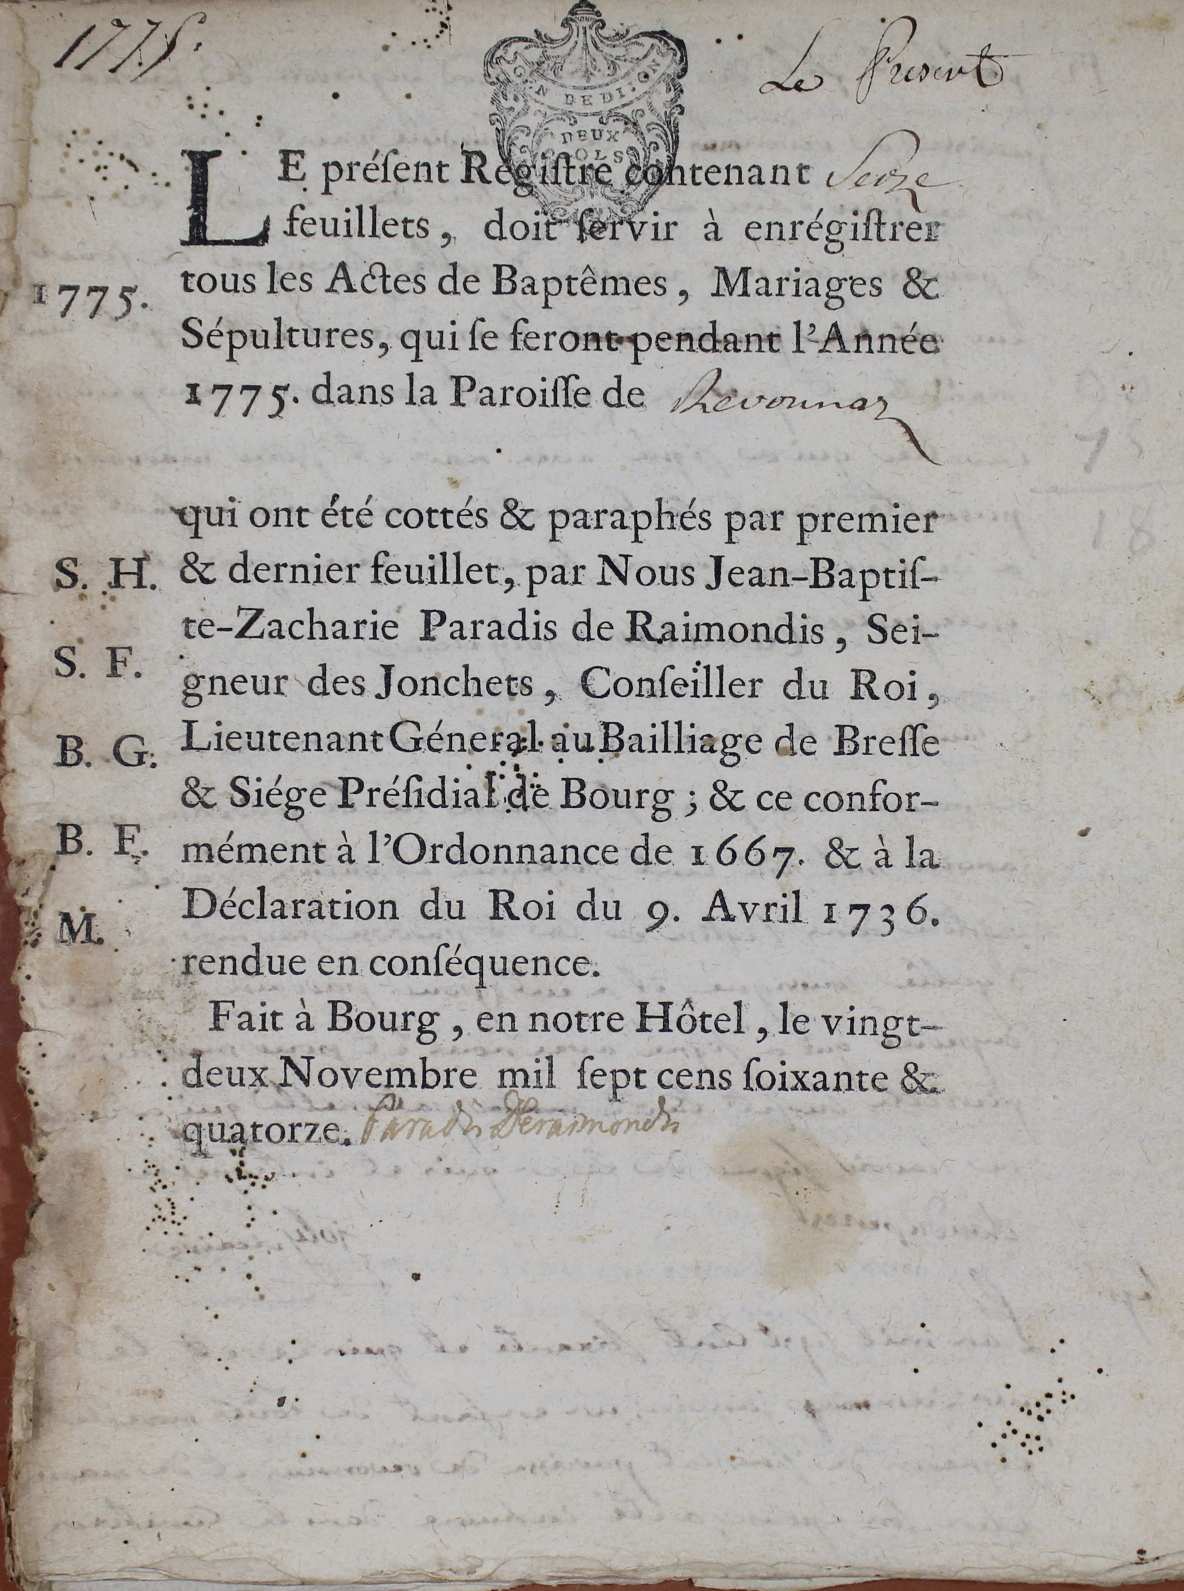 1775.
GEN DE DIJON
DEUX
SOLS
Le Present
LE préſent Regiſtre contenant Seize
feuillets, doit ſervir à enrégiſtrer
1775.
tous les Actes de Baptêmes, Mariages &
Sépultures, qui ſe feront pendant l'Année
1775. dans la Paroiſſe de Revonnaz
qui ont été cottés & paraphés par premier
S. H.
& dernier feuillet, par Nous Jean-Baptiſ-
te-Zacharie Paradis de Raimondis, Sei-
S. F.
gneur des Jonchets, Conſeiller du Roi,
B. G.
Lieutenant Géneral au Bailliage de Breſſe
& Siége Préſidial de Bourg; & ce confor-
B. F.
mément à l'Ordonnance de 1667. & à la
Déclaration du Roi du 9. Avril 1736.
M.
rendue en conſéquence.
Fait à Bourg, en notre Hôtel, le vingt-
deux Novembre mil ſept cens ſoixante &
quatorze. Paradis Deraimondis